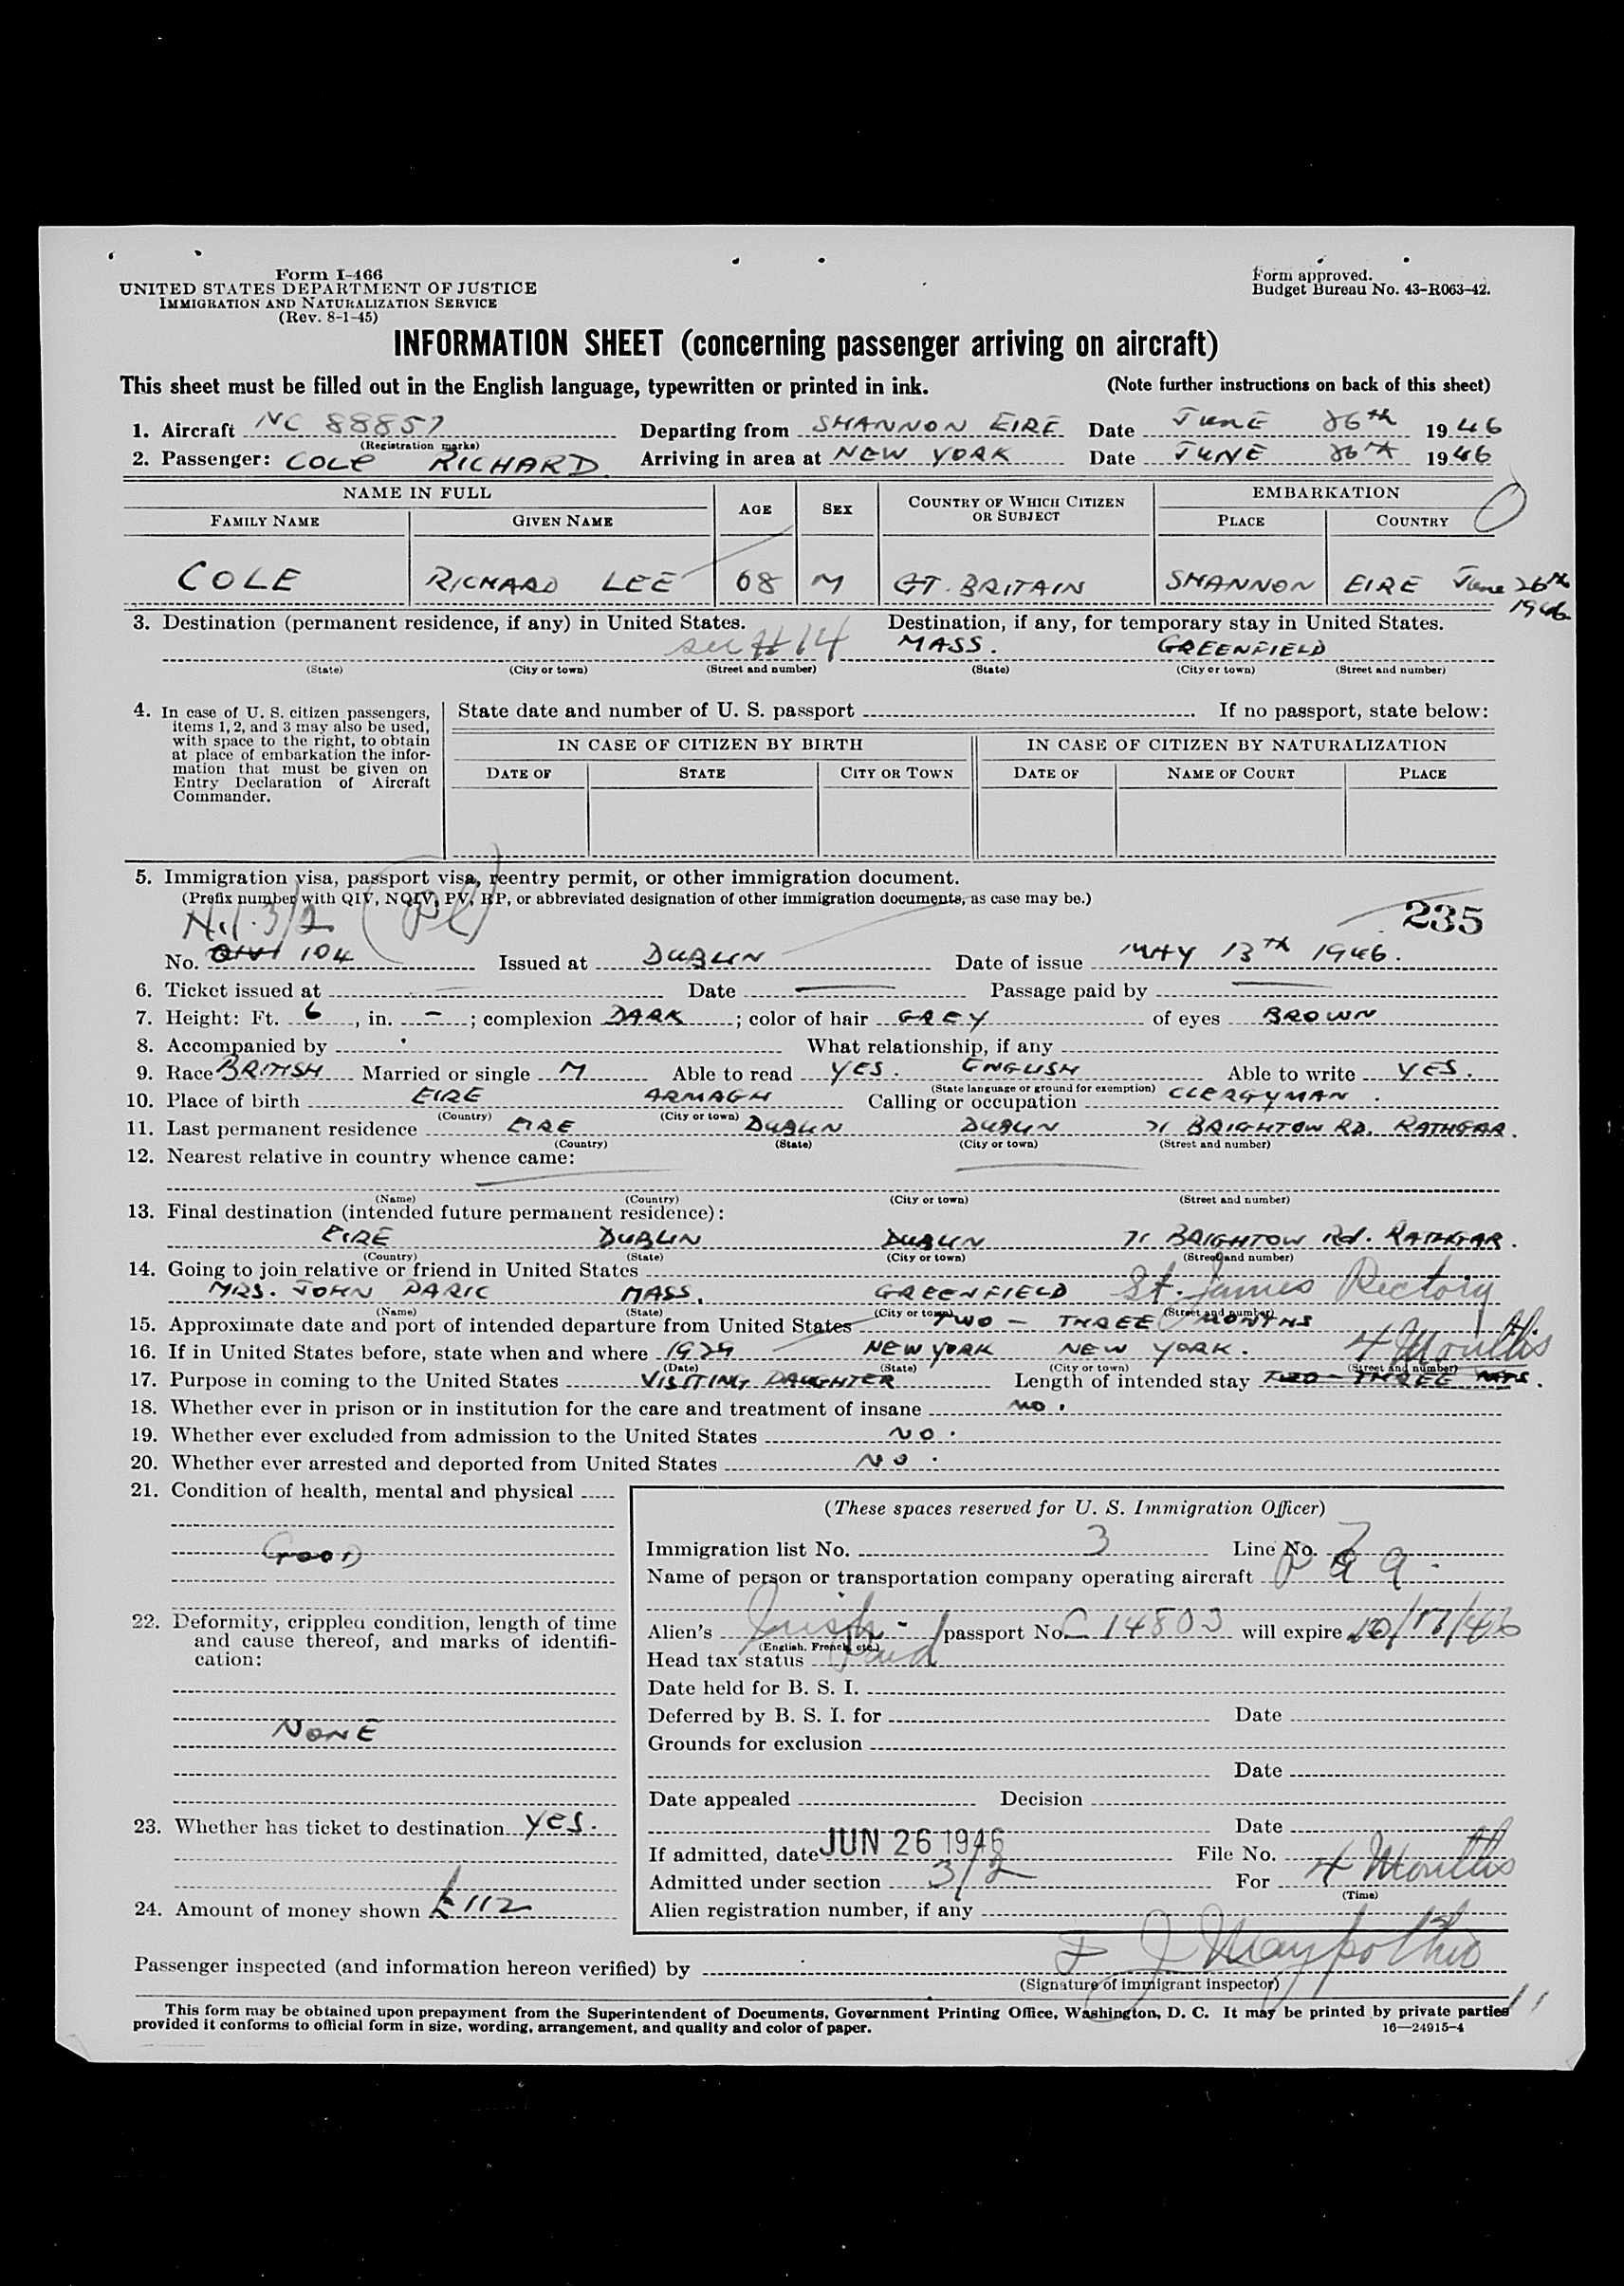 Form I-466
UNITED STATES DEPARTMENT OF JUSTICE
IMMIGRATION AND NATURALIZATION SERVICE
(Rev. 8-1-45)
Form approved.
Budget Bureau No. 43-R063-42.
INFORMATION SHEET (concerning passenger arriving on aircraft)
This sheet must be filled out in the English language, typewritten or printed in ink. (Note further instructions on back of this sheet)
1. Aircraft NC 88857 Departing from SHANNON EIRE Date JUNE 26th 1946
(Registration marks)
2. Passenger: COLE RICHARD Arriving in area at NEW YORK Date JUNE 26TH 1946
NAME IN FULL AGE SEX COUNTRY OF WHICH CITIZEN OR SUBJECT EMBARKATION
FAMILY NAME GIVEN NAME PLACE COUNTRY
COLE RICHARD LEE 68 M GT. BRITAIN SHANNON EIRE June 26th 1946
3. Destination (permanent residence, if any) in United States. Destination, if any, for temporary stay in United States.
see #14 MASS. GREENFIELD
(State) (City or town) (Street and number) (State) (City or town) (Street and number)
4. In case of U. S. citizen passengers, items 1, 2, and 3 may also be used, with space to the right, to obtain at place of embarkation the information that must be given on Entry Declaration of Aircraft Commander.
State date and number of U. S. passport . If no passport, state below:
IN CASE OF CITIZEN BY BIRTH IN CASE OF CITIZEN BY NATURALIZATION
DATE OF STATE CITY OR TOWN DATE OF NAME OF COURT PLACE
5. Immigration visa, passport visa, reentry permit, or other immigration document.
(Prefix number with QIV, NQIV, PV, RP, or abbreviated designation of other immigration documents, as case may be.)
3/2 235
No. QIVI 104 Issued at DUBLIN Date of issue MAY 13TH 1946.
6. Ticket issued at Date Passage paid by
7. Height: Ft. 6, in. -; complexion DARK; color of hair GREY of eyes BROWN
8. Accompanied by What relationship, if any
9. Race BRITISH Married or single M Able to read YES. ENGLISH Able to write YES.
(State language or ground for exemption)
10. Place of birth EIRE ARMAGH Calling or occupation CLERGYMAN.
(Country) (City or town)
11. Last permanent residence EIRE DUBLIN DUBLIN 71 BRIGHTON RD. RATHGAR.
(Country) (State) (City or town) (Street and number)
12. Nearest relative in country whence came:
(Name) (Country) (City or town) (Street and number)
13. Final destination (intended future permanent residence):
EIRE DUBLIN DUBLIN 71 BRIGHTON Rd. RATHGAR.
(Country) (State) (City or town) (Street and number)
14. Going to join relative or friend in United States
MRS. JOHN PARIC MASS. GREENFIELD St. James Rectory
(Name) (State) (City or town) (Street and number)
15. Approximate date and port of intended departure from United States TWO - THREE MONTHS
16. If in United States before, state when and where 1929 NEW YORK NEW YORK. 4 Months
(Date) (State) (City or town) (Street and number)
17. Purpose in coming to the United States VISITING DAUGHTER Length of intended stay TWO - THREE MTS.
18. Whether ever in prison or in institution for the care and treatment of insane NO.
19. Whether ever excluded from admission to the United States NO.
20. Whether ever arrested and deported from United States NO.
21. Condition of health, mental and physical
GOOD
22. Deformity, crippled condition, length of time and cause thereof, and marks of identification:
NONE
23. Whether has ticket to destination YES.
24. Amount of money shown £112
(These spaces reserved for U. S. Immigration Officer)
Immigration list No. 3 Line No. 7
Name of person or transportation company operating aircraft P a a.
Alien's Irish - passport No. C 14803 will expire 10/17/46
(English, French, etc.)
Head tax status Paid
Date held for B. S. I.
Deferred by B. S. I. for Date
Grounds for exclusion
Date
Date appealed Decision
Date
If admitted, date JUN 26 1946 File No.
Admitted under section 3/2 For 4 Months
(Time)
Alien registration number, if any
Passenger inspected (and information hereon verified) by
(Signature of immigrant inspector)
This form may be obtained upon prepayment from the Superintendent of Documents, Government Printing Office, Washington, D. C. It may be printed by private parties
provided it conforms to official form in size, wording, arrangement, and quality and color of paper. 16—24915-4